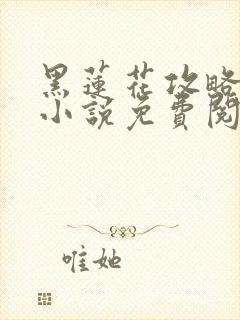 黑蓮花攻略
小說免費閱
唯她